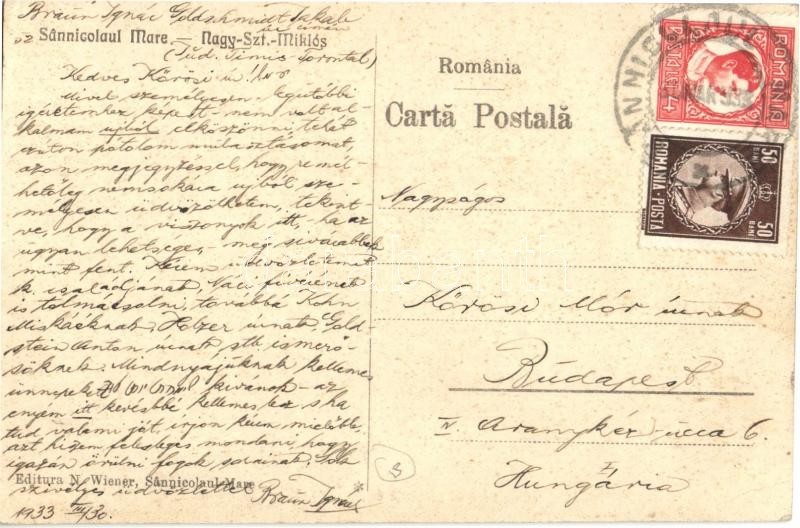 Braun Ignác Goldschmidt Jakab
úr címén
Sânnicolaul Mare — Nagy-Szt.-Miklós
(Jud. Timis-Torontal)
Kedves Kőrösi úr!
Mivel személyesen legutóbbi
ígéretemhez képest nem volt al-
kalmam ujból elköszönni, tehát
ezuton pótolom mulasztásomat,
azon megjegyzéssel, hogy remél-
hetőleg nemsokára ujból sze-
mélyesen üdvözölhetem, tekint-
ve, hogy a viszonyok itt, - ha az
ugyan lehetséges, - még sivárabbak
mint fent. Kérem üdvözletemet
k. családjának, Náci fivérének
is tolmácsolni, továbbá Kohn
Miskáéknak, Holzer úrnak, Gold-
stein Anton úrnak stb. ismerő-
söknek. Mindnyájuknak kellemes
ünnepeket kívánok - az
enyém itt kevésbbé kellemes lesz s ha
tud valami jót, írjon kérem mielőbb,
azt hiszem felesleges mondani, hogy
igazán örülni fogok sorainak. Sok
szívélyes üdvözlettel
Braun Ignác
1933 III/30.
Editura N. Wiener, Sânnicolaul-Mare
România
Cartă Postală
Nagyságos
Kőrösi Mór úrnak
Budapest
IV. Aranykéz ucca 6.
Hungária
3
ROMANIA
POSTA LEI 4
50 BANI
ROMANIA-POSTA
50 BANI